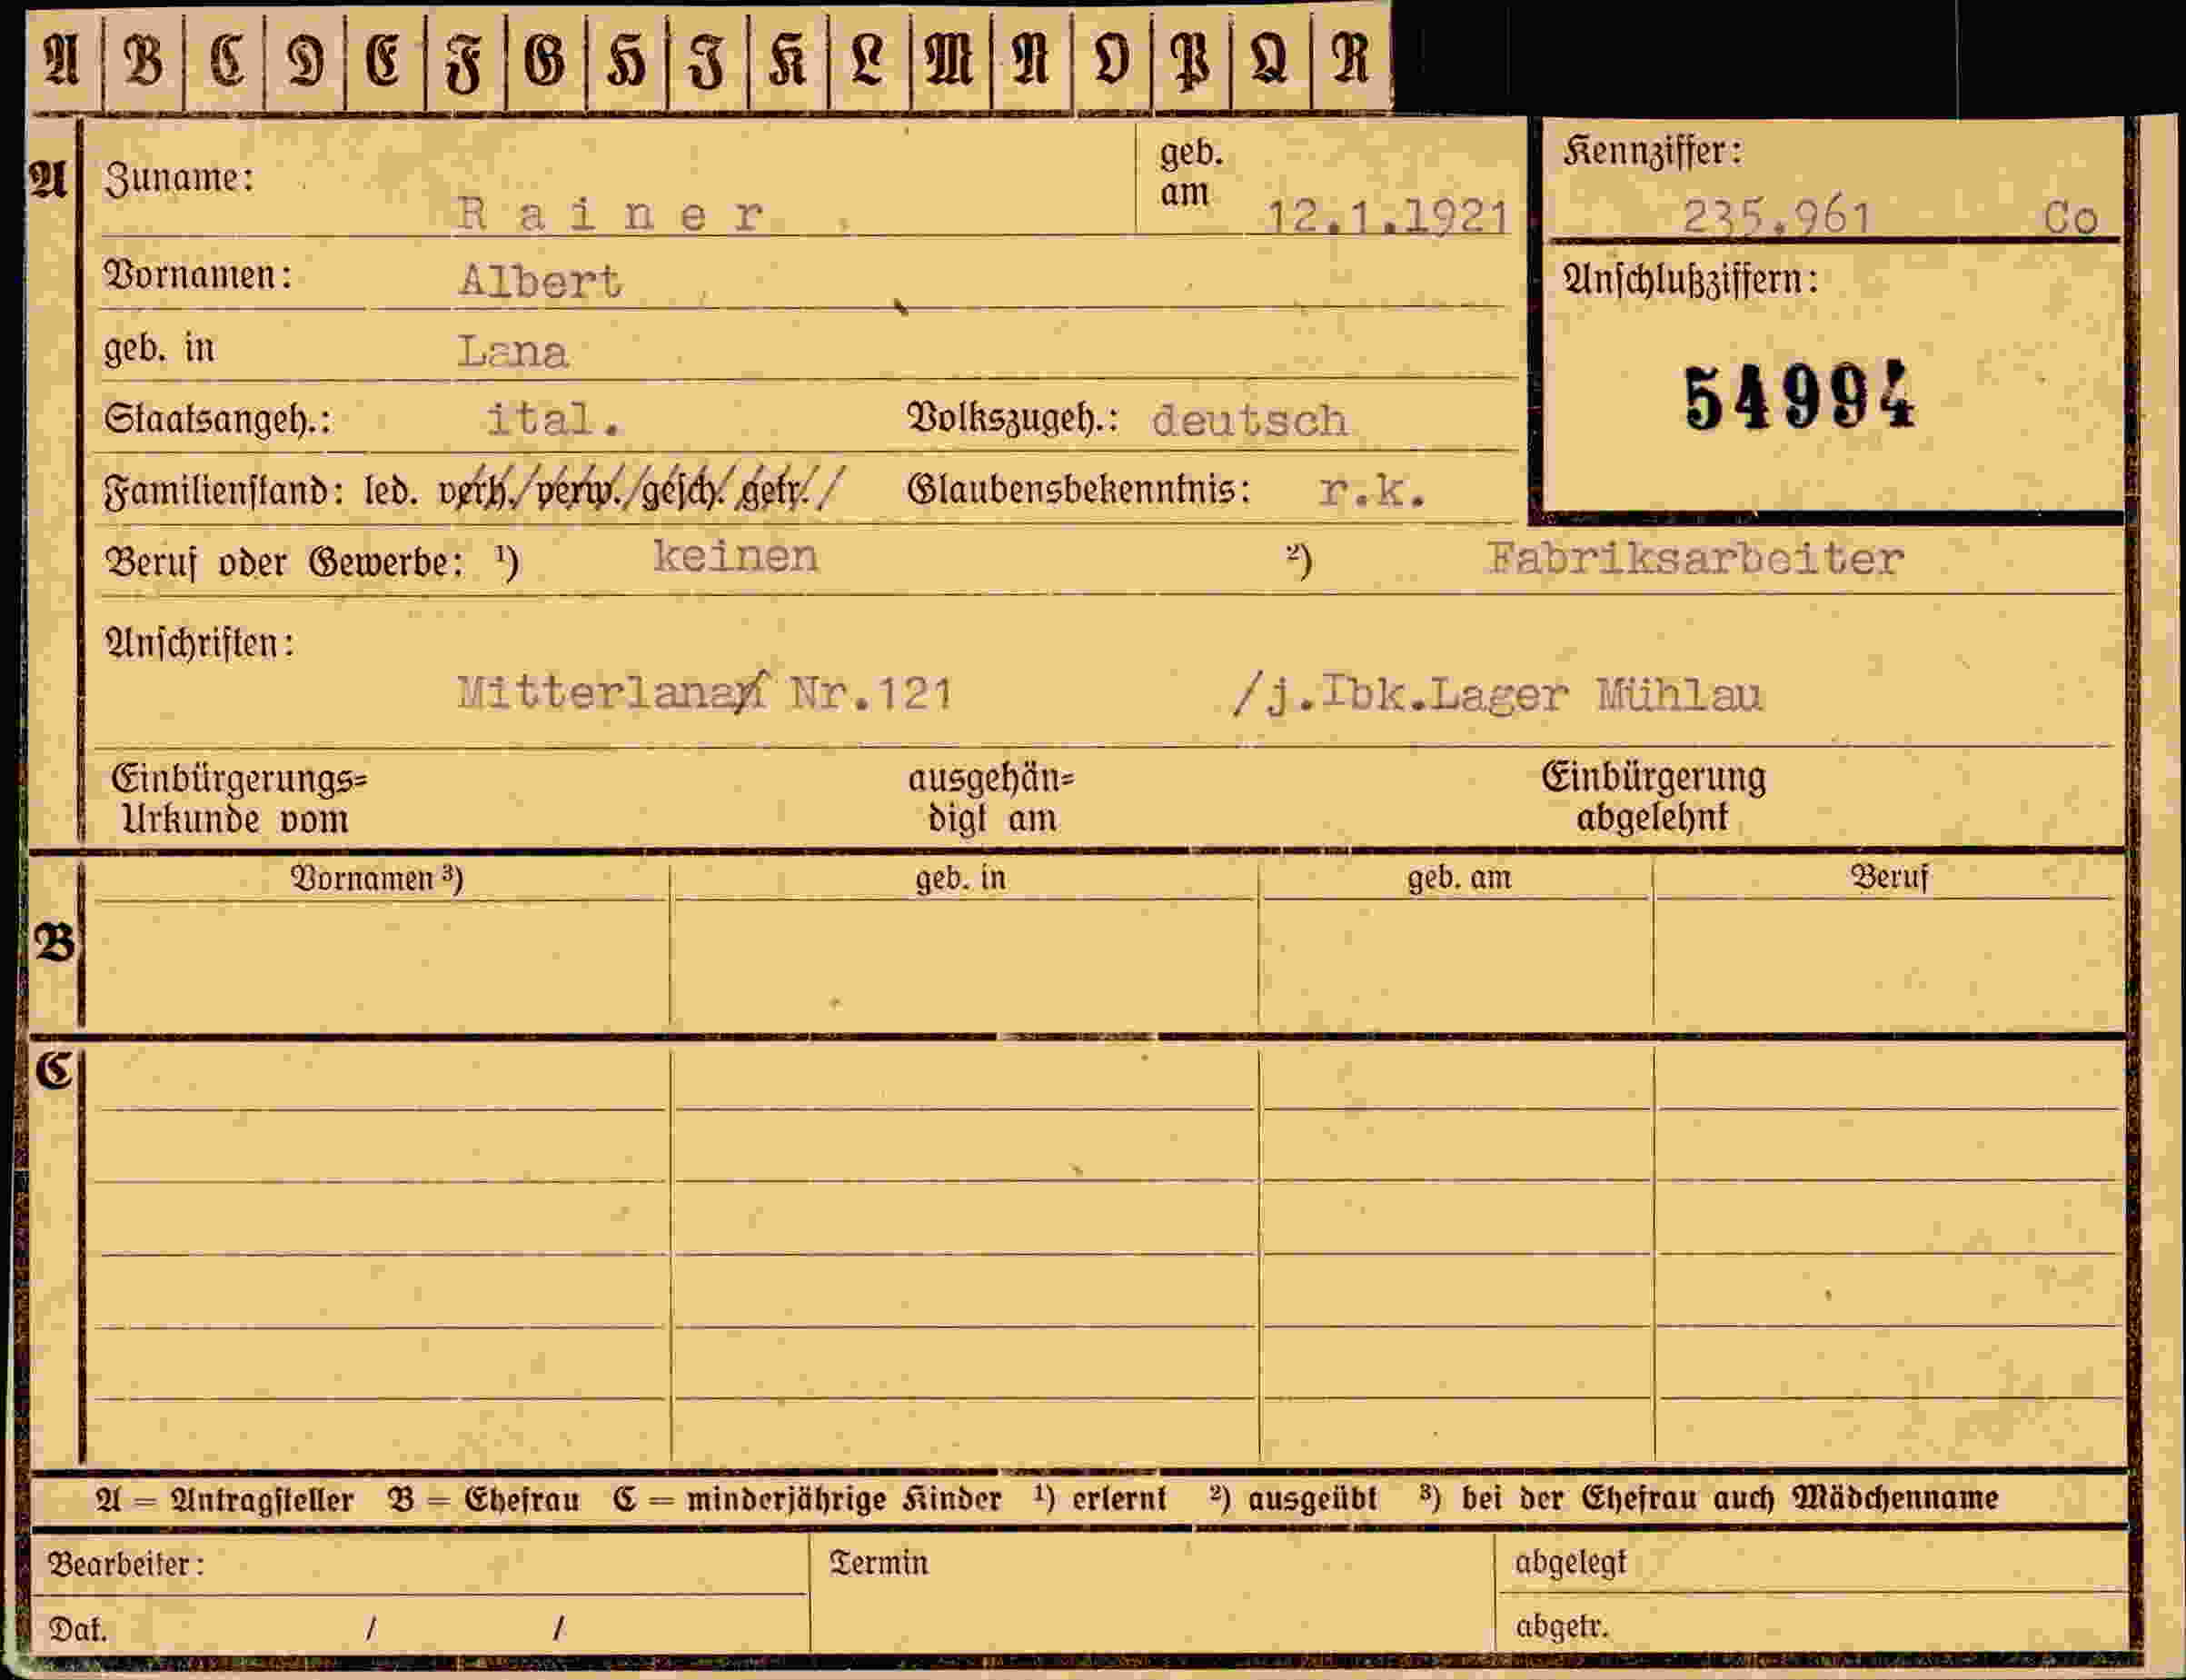 A B C D E F G H I K L M N O P Q R
A
Zuname: Rainer
geb. am 12.1.1921
Kennziffer: 235.961 Co
Vornamen: Albert
Anschlußziffern:
54994
geb. in Lana
Staatsangeh.: ital. Volkszugeh.: deutsch
Familienstand: led. verh./verw./gesch./getr./ Glaubensbekenntnis: r.k.
Beruf oder Gewerbe: ¹) keinen ²) Fabriksarbeiter
Anschriften:
Mitterlana Nr.121 /j.Ibk.Lager Mühlau
Einbürgerungs= ausgehän= Einbürgerung
Urkunde vom digt am abgelehnt
B
Vornamen ³) geb. in geb. am Beruf
C
A = Antragsteller B = Ehefrau C = minderjährige Kinder ¹) erlernt ²) ausgeübt ³) bei der Ehefrau auch Mädchenname
Bearbeiter: Termin abgelegt
Dat. / / abgetr.